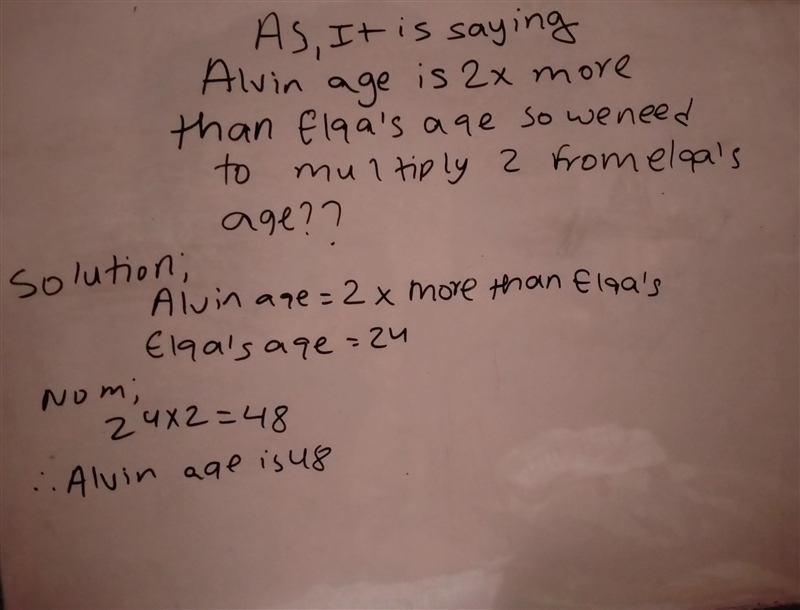 As, It is saying
Alvin age is 2x more
than Elqa's age so we need
to multiply 2 from elqa's
age??
Solution;
Alvin age = 2 x more than Elqa's
Elqa's age = 24
Now;
24x2 = 48
∴ Alvin age is 48